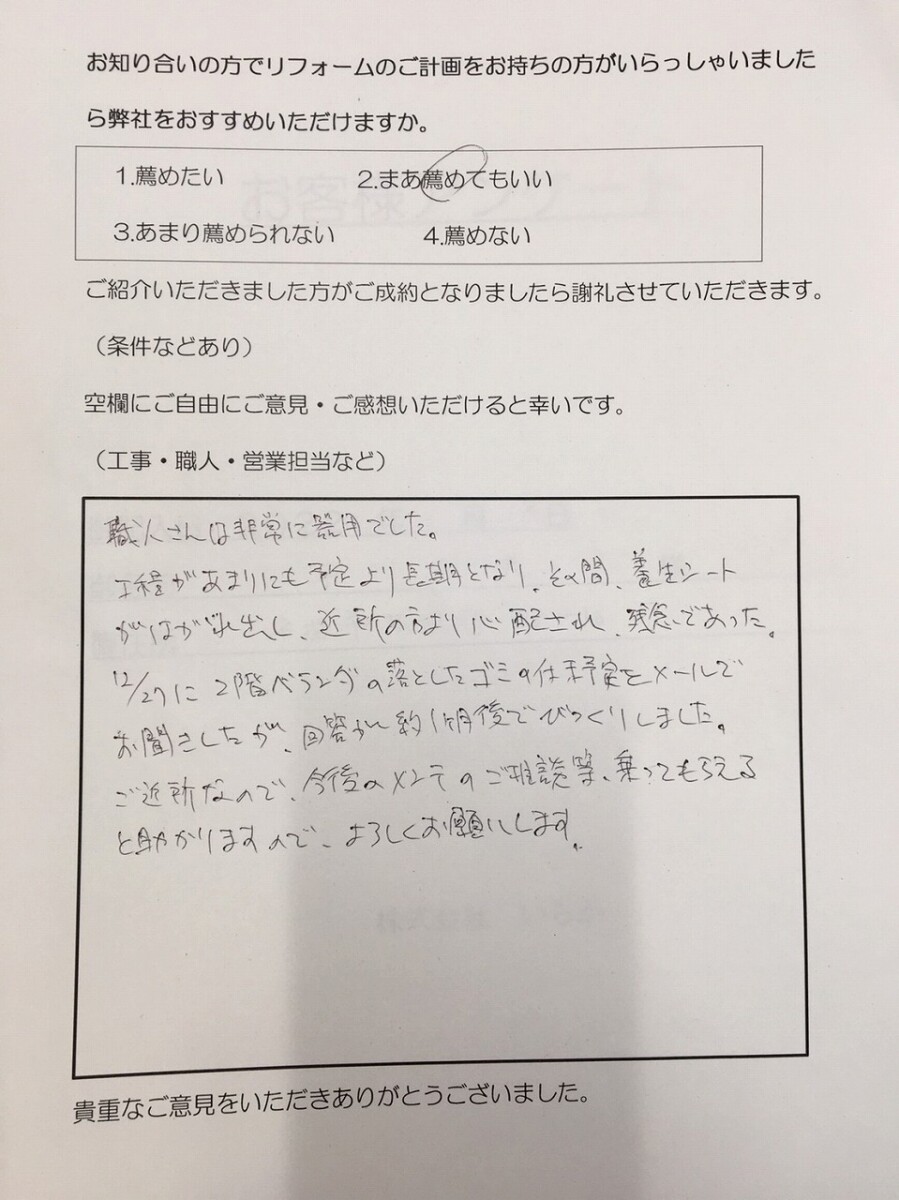 お知り合いの方でリフォームのご計画をお持ちの方がいらっしゃいました
ら弊社をおすすめいただけますか。
1.薦めたい 2.まあ薦めてもいい
3.あまり薦められない 4.薦めない
ご紹介いただきました方がご成約となりましたら謝礼させていただきます。
（条件などあり）
空欄にご自由にご意見・ご感想いただけると幸いです。
（工事・職人・営業担当など）
職人さんは非常に器用でした。
工程があまりにも予定より長期となり、その間、養生シート
がはがれ出し、近所の方より心配され、残念であった。
12/27に2階ベランダの落としたゴミの 予定をメールで
お聞きしたが、回答が約1ヶ月後でびっくりしました。
ご近所なので、今後のメンテのご相談等、乗ってもらえる
と助かりますので、よろしくお願いします。
貴重なご意見をいただきありがとうございました。